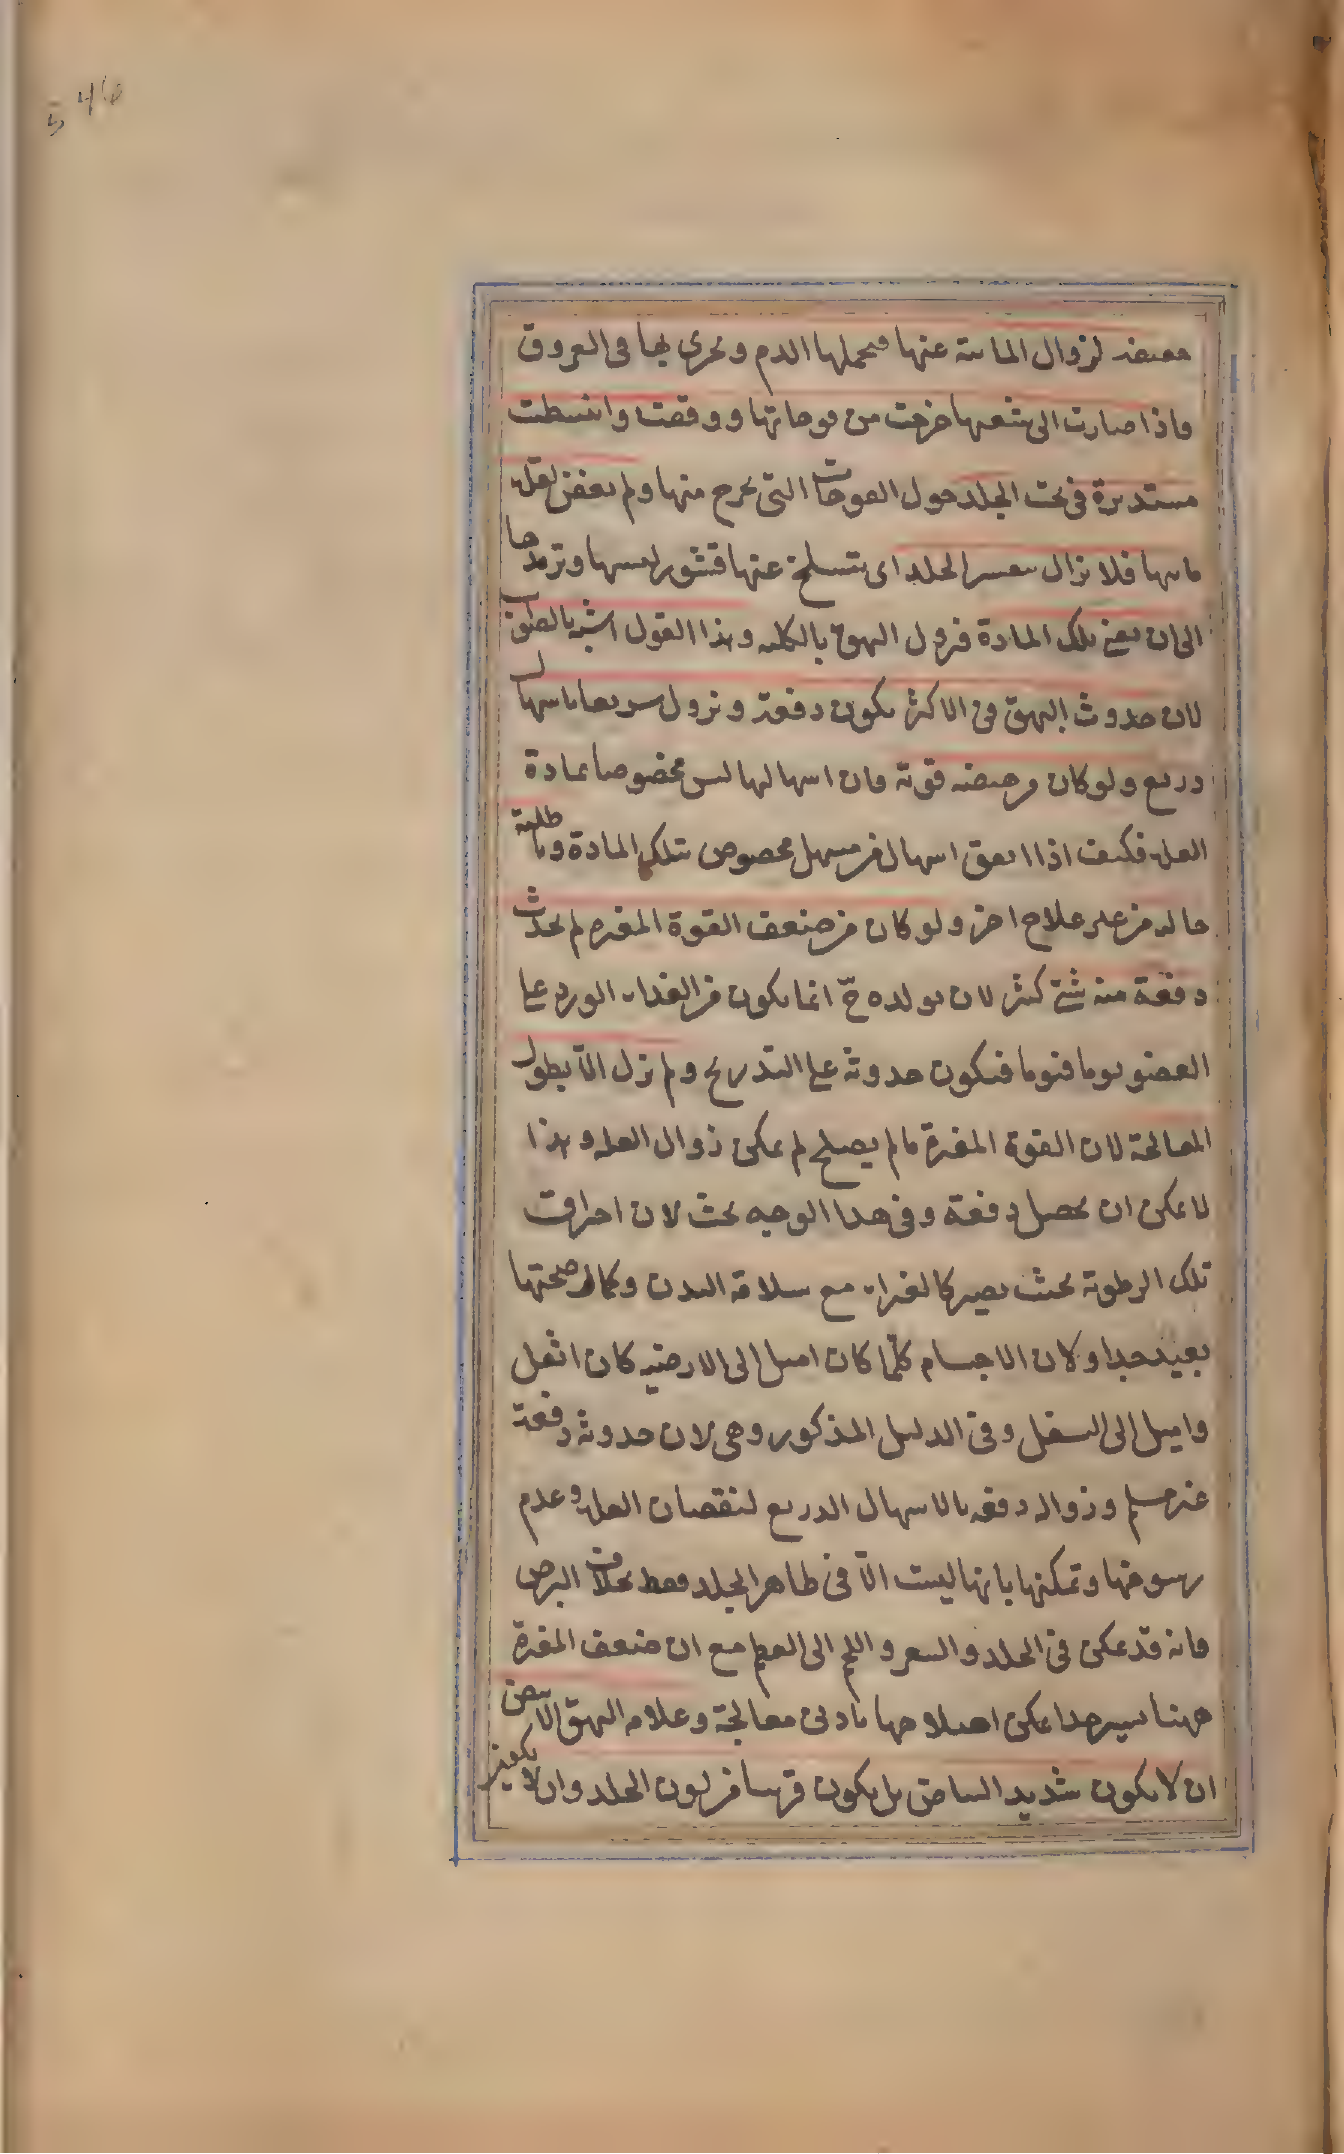 546
لزوال المائية عنها فيحملها الدم ويجري بها فى العروق
فاذا صارت الى شعبها خرجت من فوهاتها ووقفت وانبسطت
مستديرة فى تحت الجلد حول الفوهات التى يخرج منها ولم يعفن لقلة
مائيتها فلا تزال يتقشر الجلد اى يتسلخ عنها قشور ليبسها وتردها
الى ان يفنى تلك المادة فيزول البهق بالكلية وهذا القول اشبه بالصواب
لان حدوث البهق فى الاكثر يكون دفعة ويزول سريعا باسهال
ذريع ولو كان من هيضة قوية فان اسهالها ليس مخصوصا بمادة
العلة فكيف اذا اتفق اسهال من مسهل مخصوص بتلك المادة
من غير علاج اخر ولو كان من ضعف القوة المغيرة لم يحدث
دفعة منه شئ كثير لان تولده ح انما يكون من الغذاء الوارد على
العضو يوما فيوما فيكون حدوثه على التدريج ولم يزل الا بطول
المعالجة لان القوة المغيرة ما لم يصلح لم يمكن زوال العلة وهذا
لا يمكن ان يحصل دفعة وفى هذا الوجه بحث لان احراق
تلك الرطوبة بحيث يصير كالغراء مع سلامة البدن وكمال صحتها
بعيد جدا ولان الاجسام كلما كان اميل الى الارضية كان اثقل
واميل الى السفل وفى الدليل المذكور وهى لان حدوثه دفعة
غير مسلم وزواله دفعة بالاسهال الذريع لنقصان العلة وعدم
رسوخها وتمكنها بانها ليست الا فى ظاهر الجلد فقط بخلاف البرص
فانه قد يمكن فى الجلد والشعر واللحم الى العظم مع ان ضعف المغيرة
ههنا يسير جدا يمكن اصلاحها بادنى معالجة وعلامة البهق الابيض
ان لا يكون شديد البياض بل يكون قريبا من لون الجلد وان لا يكون